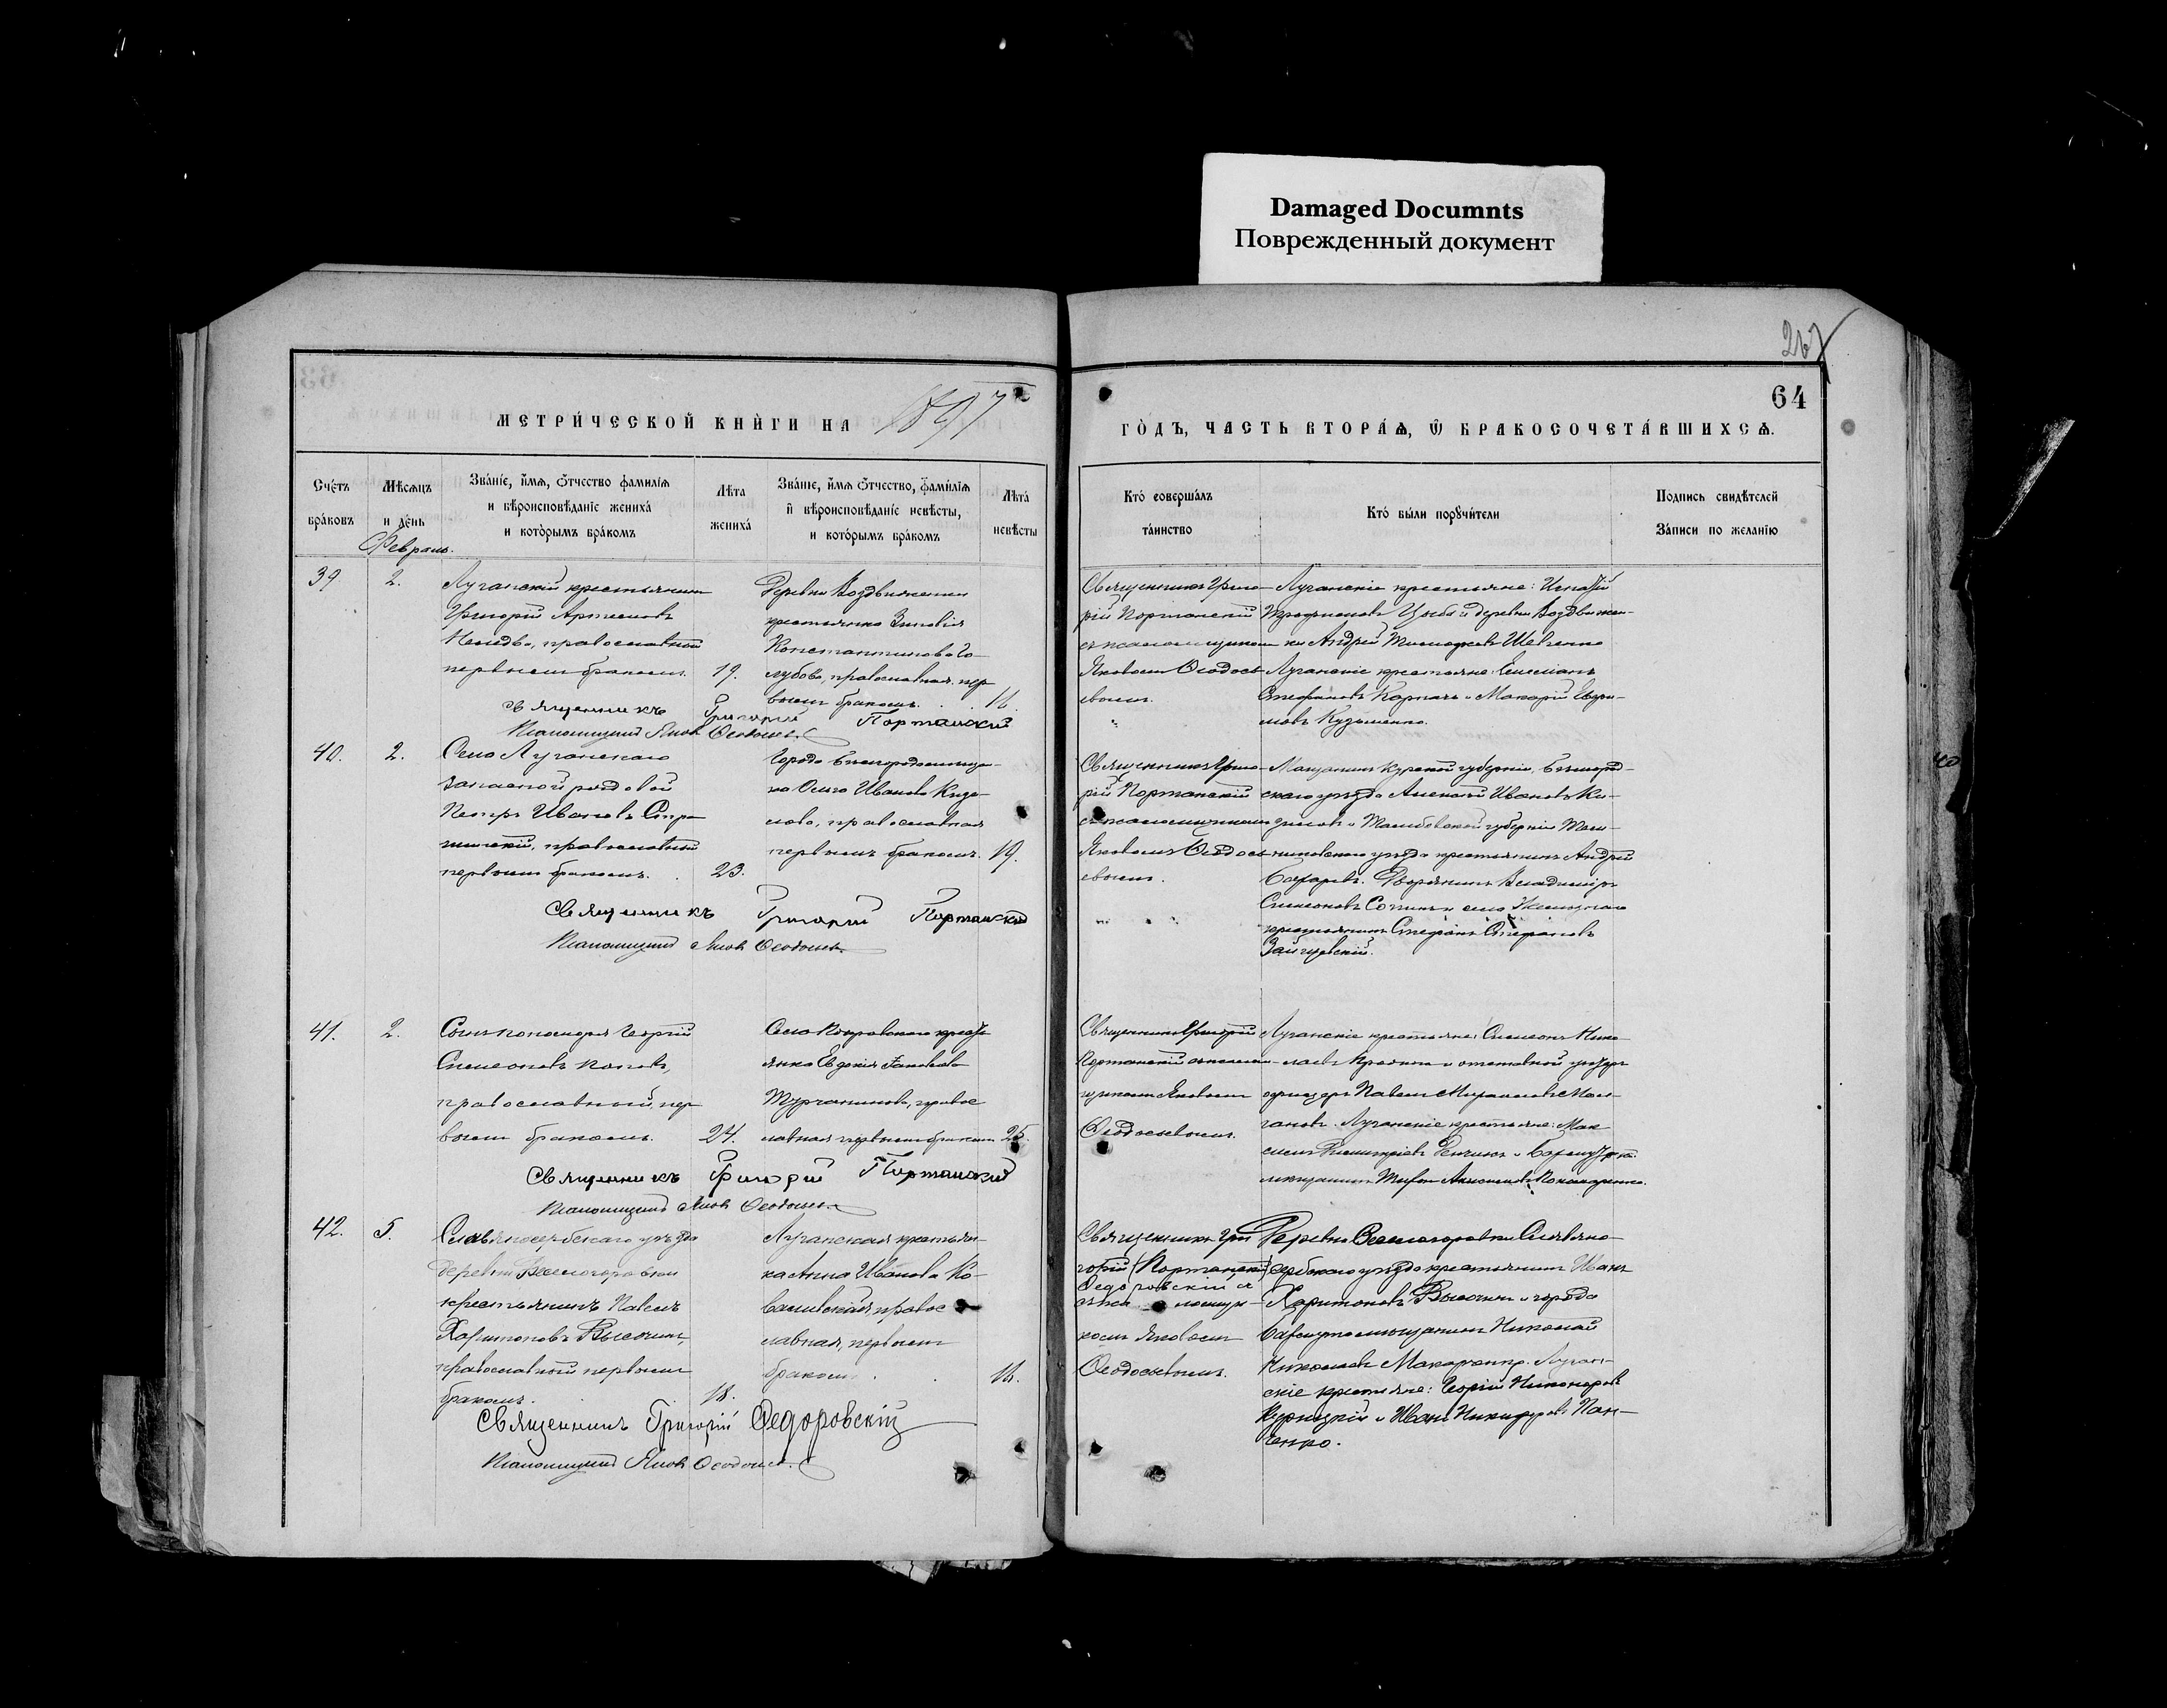 Damaged Documnts
Поврежденный документ
267
64
МЕТРИ́ЧЕСКОЙ КНЍГИ НА 1897
ГО̀ДЪ, ЧАСТЬ ВТОРА́Ѧ, Ѿ БРАКОСОЧЕТА́ВШИХСѦ.
Сче́тъ
бра́ковъ
Мѣсѧцъ
и де́нь
Зва́нїе, и́мѧ, ѻ́тчество фамилїѧ
и вѣроисповѣ́данїе жениха́
и кото́рымъ бра́комъ
Лѣта
жениха́
Зва́нїе, и́мѧ ѻ́тчество, фами́лїѧ
и вѣроисповѣ́данїе невѣсты,
и кото́рымъ бра́комъ
Лѣта́
невѣсты
Кто́ соверша́лъ
та́инство
Кто́ бы́ли порꙋчи́тели
Подпись свидѣтелей
За́писи по жела́нїю
Февраль.
39. 2.
Луганскій крестьянинъ
Григорій Артемовъ
православный
первымъ бракомъ. 19.
Деревни Воздвиженки
крестьянка Зиновія
Константинова Го-
лубова, православная, пер
вымъ бракомъ. 16.
Священникъ Григо-
рій Портанскій
съ псаломщикомъ
Яковомъ Ѳеодось-
евымъ.
Луганскіе крестьяне: Игнатій
Трофимовъ Цыба и деревни Воздвижен-
ки Андрей Тимофеевъ Шевченко
Луганскіе крестьяне: Емеліанъ
Стефановъ Карпачъ и Макарій Ефи-
мовъ Кузьменко.
Священникъ Григорій Портанскій
Псаломщикъ Яковъ Ѳеодосьевъ
40. 2.
Села Луганскаго
запасной рядовой
Петръ Ивановъ
православный
первымъ бракомъ. 23.
Города Бѣлгорода мѣщан-
ка Ольга Иванова
православная
первымъ бракомъ. 19.
Священникъ Григо-
рій Портанскій
съ псаломщикомъ
Яковомъ Ѳеодось-
евымъ.
Мѣщанинъ Курской губерніи, Бѣлгород-
скаго уѣзда Алексѣй Ивановъ
и Тамбовской губерніи
уѣзда крестьянинъ Андрей
Дворянинъ Владиміръ
Симеоновъ и села
крестьянинъ Стефанъ Стефановъ
Священникъ Григорій Портанскій
Псаломщикъ Яковъ Ѳеодосьевъ
41. 2.
Сынъ Георгій
Симеоновъ Поповъ,
православный, пер
вымъ бракомъ. 24.
Села Покровскаго крест
янка Евдокія
Турчанинова, правос
лавная первымъ бракомъ 25.
Священникъ Григорій
Портанскій съ псалом-
щикомъ Яковомъ
Ѳеодосьевымъ.
Луганскіе крестьяне: Симеонъ Нико-
лаевъ и отставной унтеръ
офицеръ Павелъ
Луганскіе крестьяне: Мак
симъ Димитріевъ и
Священникъ Григорій Портанскій
Псаломщикъ Яковъ Ѳеодосьевъ
42. 5.
Славяносербскаго уѣзда
деревни Веселогоровки
крестьянинъ Павелъ
Харитоновъ Высочинъ,
православный первымъ
бракомъ. 18.
Луганская крестьян-
ка Анна Иванова Ко-
валивская, правос
лавная, первымъ
бракомъ. 16.
Священникъ Гри
горій (Портанскій)
Федоровскій съ
Яковомъ
Ѳеодосьевымъ.
Деревни Веселогоровки Славяно-
сербскаго уѣзда крестьянинъ Иванъ
Харитоновъ Высочинъ и города
Бахмута мѣщанинъ Николай
Николаевъ Макаренко. Луган-
скіе крестьяне: Георгій Никаноровъ
и Иванъ Никифоровъ Пан-
ченко.
Священникъ Григорій Федоровскій
Псаломщикъ Яковъ Ѳеодосьевъ